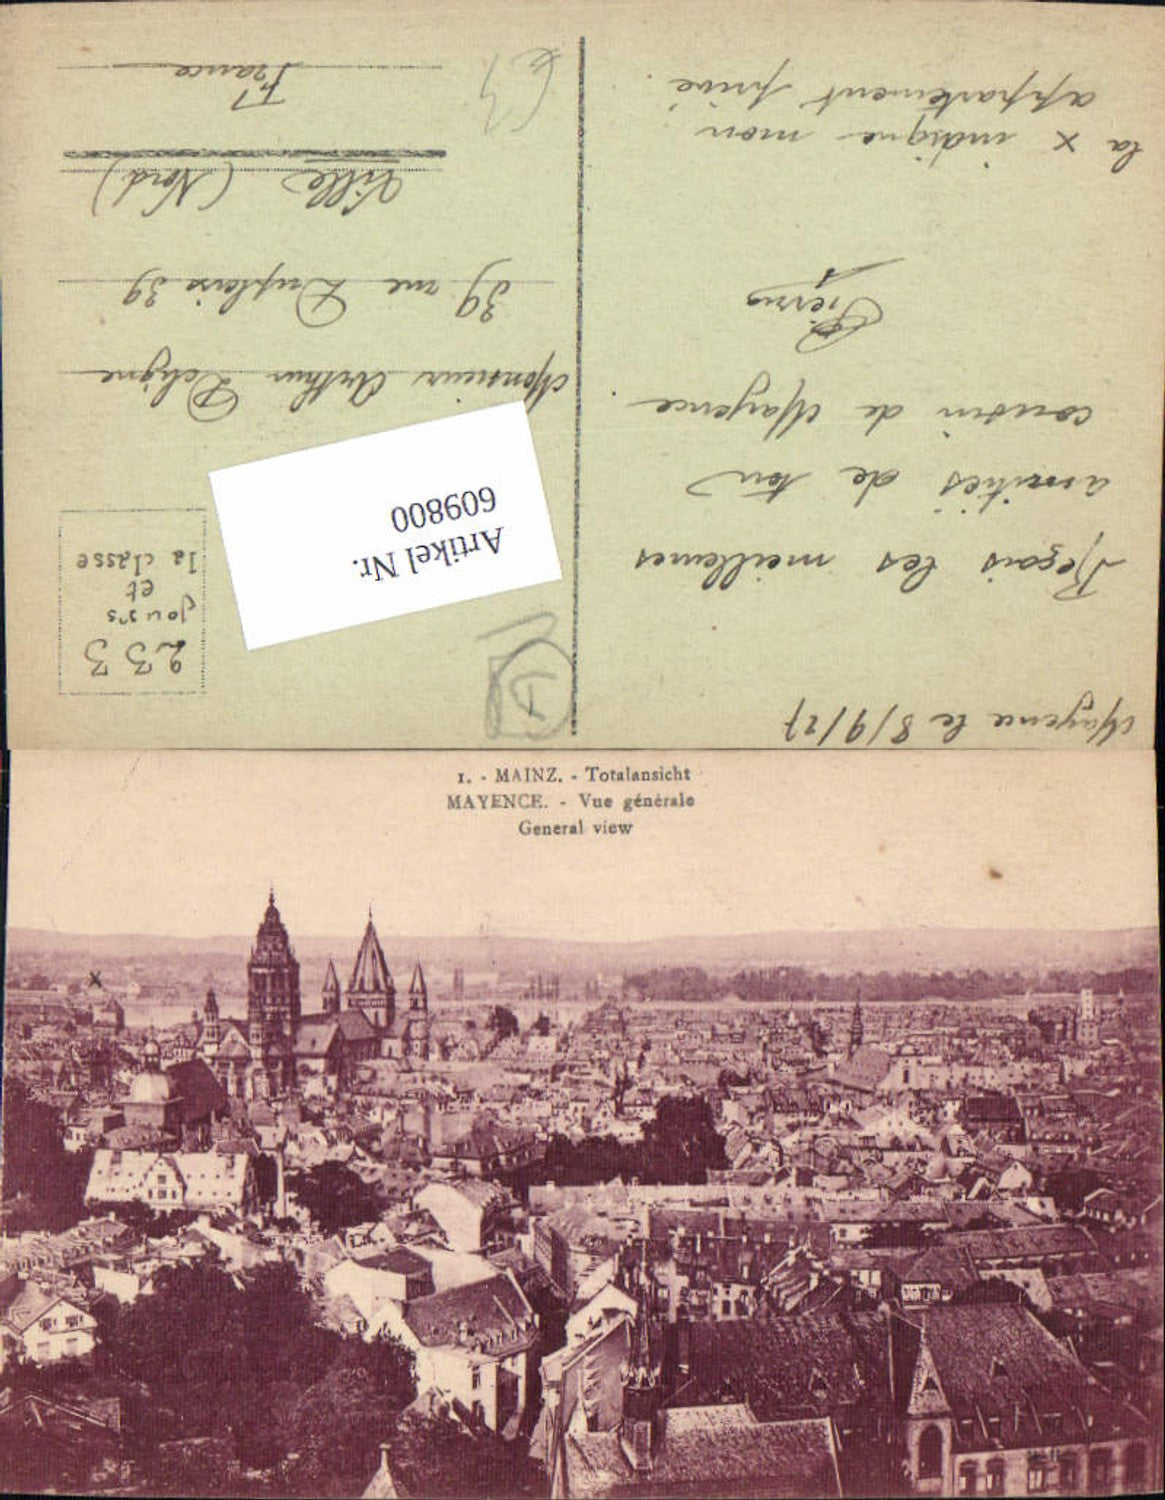 Mayence le 8/9/27
Reçois les meilleures
amitiés de ton
cousin de Mayence
Pierre
la x indique mon
appartement privé
233
jours
et
la classe
Artikel Nr.
609800
Monsieur Arthur Deligne
39 rue Dupleix 39
Lille (Nord)
France
1. - MAINZ. - Totalansicht
MAYENCE. - Vue générale
General view
x